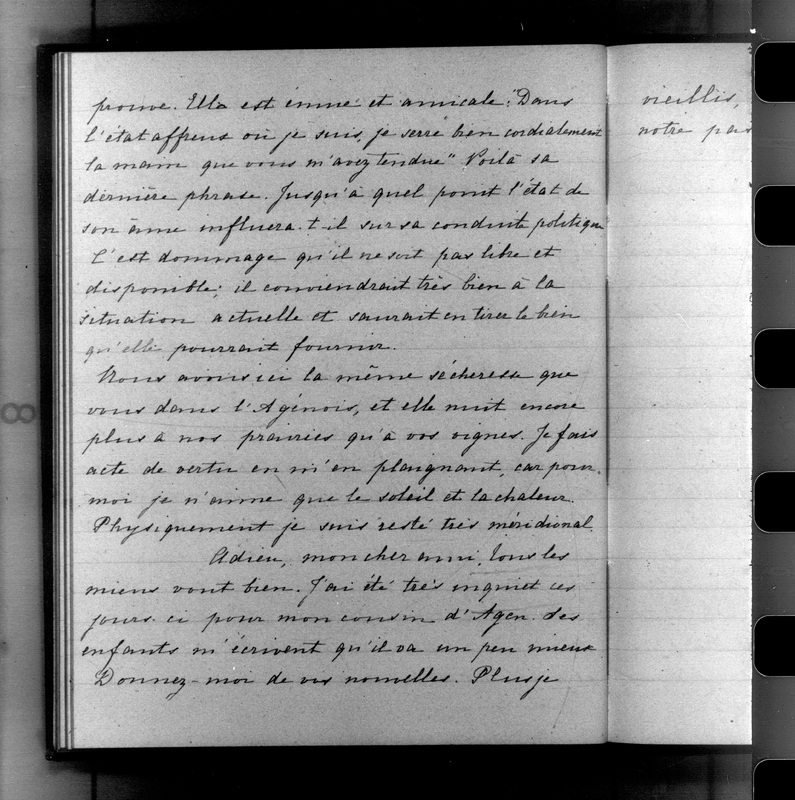 prouve. Elle est émue et amicale: "Dans
l'état affreux où je suis, je serre bien cordialement
la main que vous m'avez tendue" Voilà sa
dernière phrase. Jusqu'à quel point l'état de
son âme influera-t-il sur sa conduite politique
C'est dommage qu'il ne soit pas libre et
disponible; il conviendrait très bien à la
situation actuelle et saurait en tirer le bien
qu'elle pourrait fournir.
Nous avons ici la même sécheresse que
vous dans l'Agénois, et elle nuit encore
plus à nos prairies qu'à vos vignes. Je fais
acte de vertu en m'en plaignant, car pour
moi je n'aime que le soleil et la chaleur.
Physiquement je suis resté très méridional.
Adieu, mon cher ami, tous les
miens vont bien. J'ai été très inquiet ces
jours-ci pour mon cousin d'Agen. Ses
enfants m'écrivent qu'il va un peu mieux
Donnez-moi de vos nouvelles. Plus je
vieillis,
notre pas
8